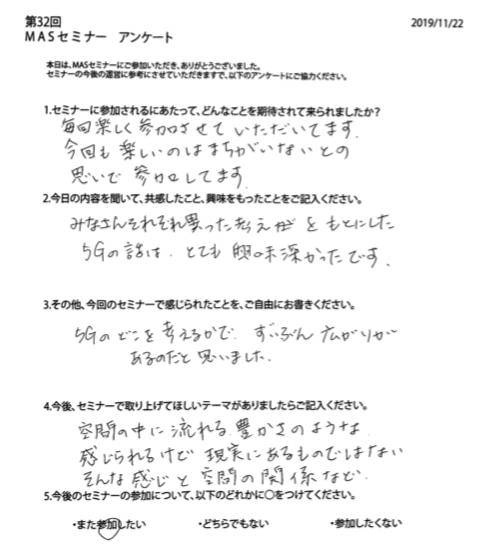 第32回
MASセミナー　アンケート
2019/11/22
本日は、MASセミナーにご参加いただき、ありがとうございました。
セミナーの今後の運営に参考にさせていただきますで、以下のアンケートにご協力ください。
1.セミナーに参加されるにあたって、どんなことを期待されて来られましたか？
毎回楽しく参加させていただいてます。
今回も楽しいのはまちがいないとの
思いで参加してます
2.今日の内容を聞いて、共感したこと、興味をもったことをご記入ください。
みなさんそれぞれ異った考えがをもとにした
5Gの話は、とても興味深かったです。
3.その他、今回のセミナーで感じられたことを、ご自由にお書きください。
5Gのどこを考えるかで、ずいぶん広がりが
あるのだと思いました。
4.今後、セミナーで取り上げてほしいテーマがありましたらご記入ください。
空間の中に流れる豊かさのような
感じられるけど現実にあるものではない
そんな感じと空間の関係など、
5.今後のセミナーの参加について、以下のどれかに○をつけてください。
・また参加したい　・どちらでもない　・参加したくない